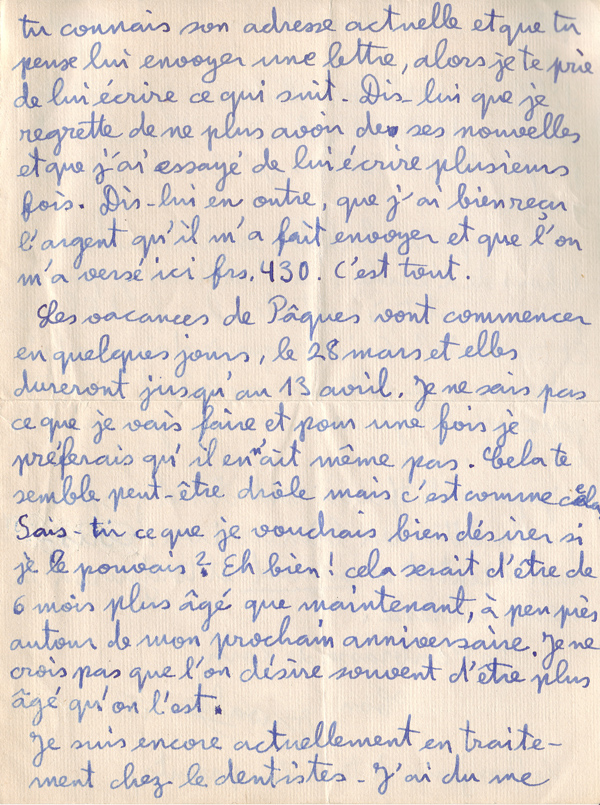 tu connais son adresse actuelle et que tu
peux lui envoyer une lettre, alors je te prie
de lui écrire ce qui suit. Dis-lui que je
regrette de ne plus avoir de ses nouvelles
et que j'ai essayé de lui écrire plusieurs
fois. Dis-lui en outre, que j'ai bien reçu
l'argent qu'il m'a fait envoyer et que l'on
m'a versé ici frs. 430. C'est tout.
Les vacances de Pâques vont commencer
en quelques jours, le 28 mars et elles
dureront jusqu'au 13 avril. Je ne sais pas
ce que je vais faire et pour une fois je
préferais qu'il en n'ait même pas. Cela te
semble peut-être drôle mais c'est comme cela
Sais-tu ce que je voudrais bien désirer si
je le pouvais? Eh bien! cela serait d'être de
6 mois plus âgé que maintenant, à peu près
autour de mon prochain anniversaire. Je ne
crois pas que l'on désire souvent d'être plus
âgé qu'on l'est.
Je suis encore actuellement en traite-
ment chez le dentistes. J'ai du me